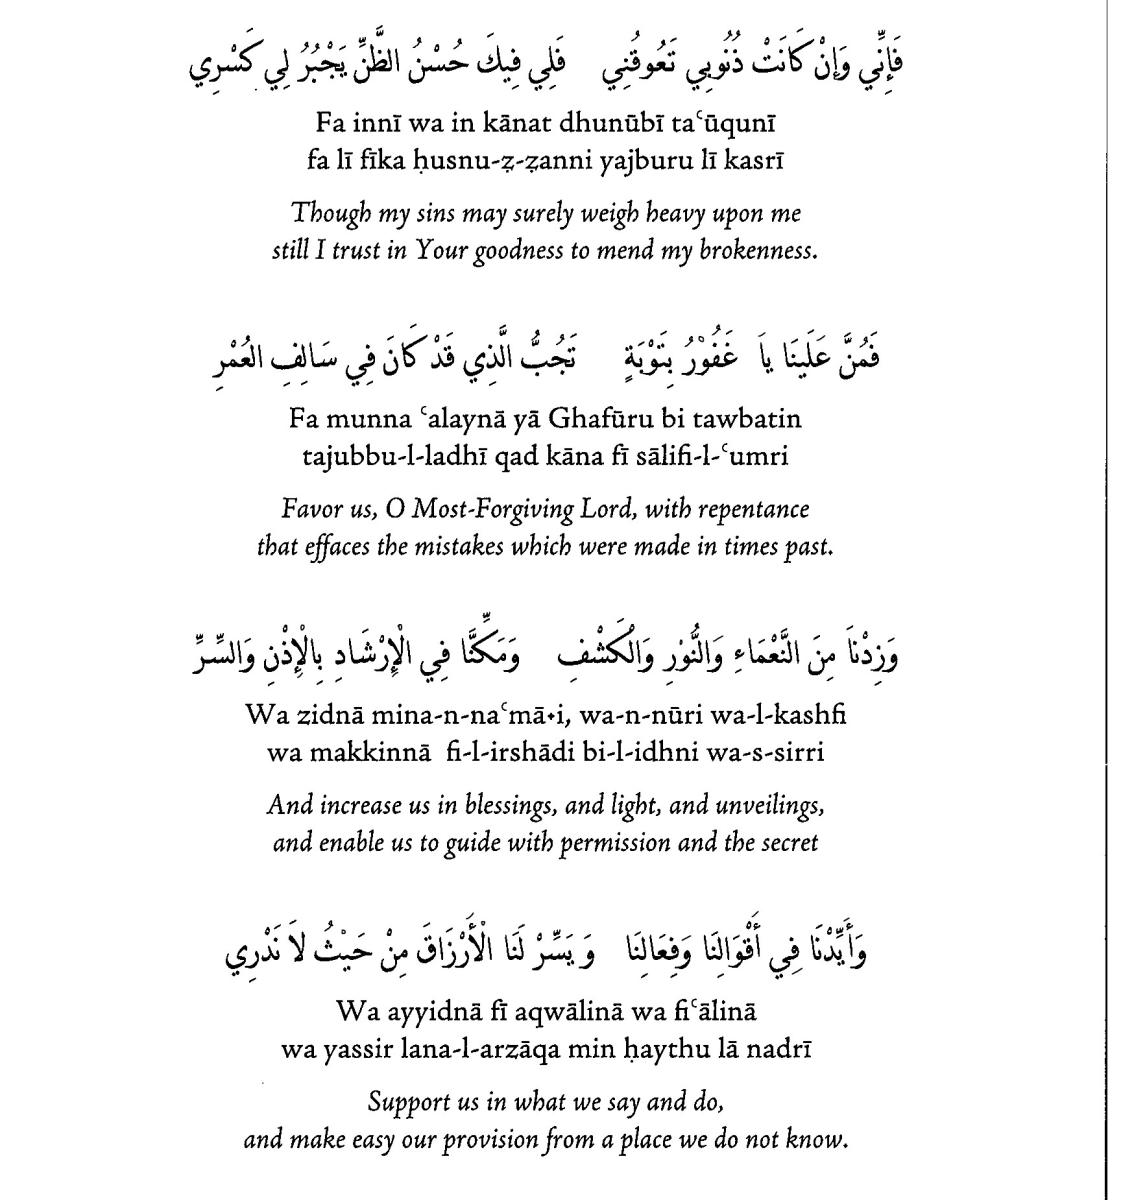 فَإِنِّي وَإِنْ كَانَتْ ذُنُوبِي تَعُوقُنِي فَلِي فِيكَ حُسْنُ الظَّنِّ يَجْبُرُ لِي كَسْرِي
Fa innī wa in kānat dhunūbī taʿūqunī
fa lī fīka ḥusnu-ẓ-ẓanni yajburu lī kasrī
Though my sins may surely weigh heavy upon me
still I trust in Your goodness to mend my brokenness.
فَمُنَّ عَلَينَا يَا غَفُوْرُ بِتَوْبَةٍ تَجُبُّ الَّذِي قَدْ كَانَ فِي سَالِفِ العُمْرِ
Fa munna ʿalaynā yā Ghafūru bi tawbatin
tajubbu-l-ladhī qad kāna fī sālifi-l-ʿumri
Favor us, O Most-Forgiving Lord, with repentance
that effaces the mistakes which were made in times past.
وَزِدْنَا مِنَ النَّعْمَاءِ وَالنُّوْرِ وَالْكَشْفِ وَمَكِّنَّا فِي الْإِرْشَادِ بِالْإِذْنِ وَالسِّرِّ
Wa zidnā mina-n-naʿmā•i, wa-n-nūri wa-l-kashfi
wa makkinnā fi-l-irshādi bi-l-idhni wa-s-sirri
And increase us in blessings, and light, and unveilings,
and enable us to guide with permission and the secret
وَأَيِّدْنَا فِي أَقْوَالِنَا وَفِعَالِنَا وَيَسِّرْ لَنَا الْأَرْزَاقَ مِنْ حَيْثُ لَا نَدْرِي
Wa ayyidnā fī aqwālinā wa fiʿālinā
wa yassir lana-l-arzāqa min ḥaythu lā nadrī
Support us in what we say and do,
and make easy our provision from a place we do not know.